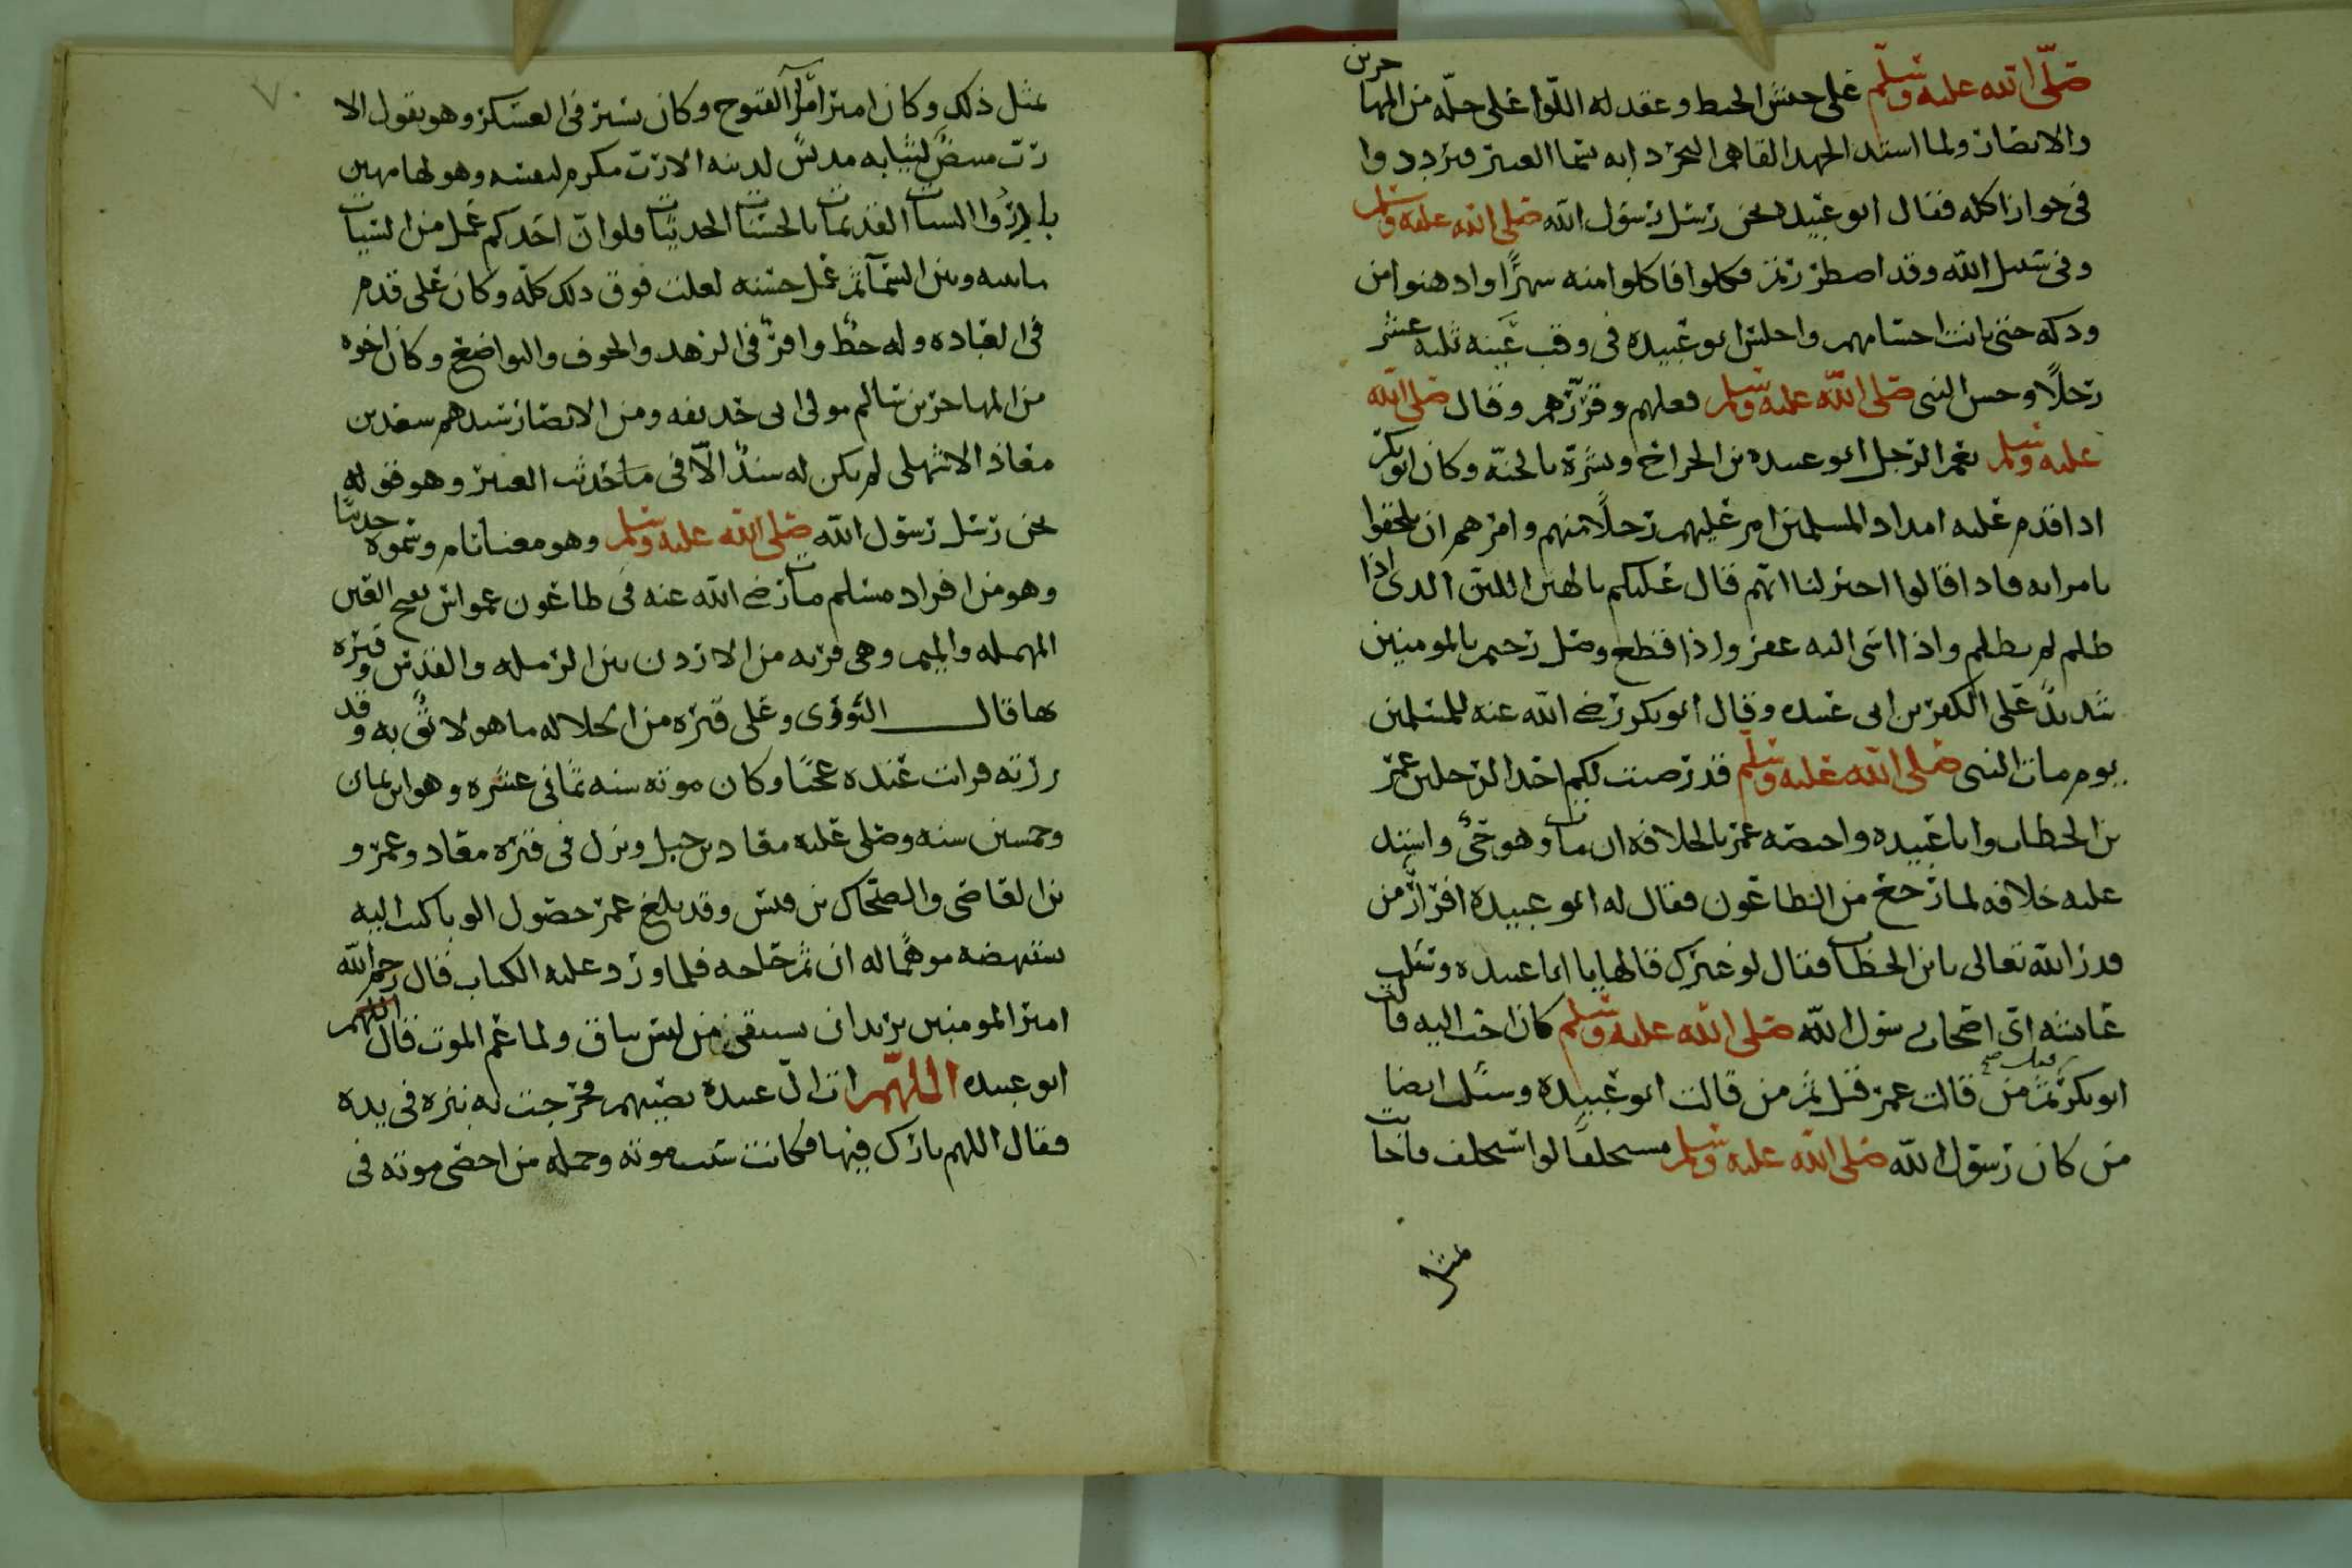 صلى الله عليه وسلم على جيش الخبط وعقد له اللوا على جله من المهاجرين
والانصار ولما اشتد الجهد القاهم البحر دابه سما العنبر فترددوا
في جواز اكله فقال ابو عبيده نحن رسل رسول الله صلى الله عليه وسلم
وفي سبيل الله وقد اضطررتم فكلوا فاكلوا منه شهرًا وادهنوا من
ودكه حتى بانت اجسامهم واجلس ابو عبيده في وقب عينه ثلثه عشر
رجلًا وحسن النبي صلى الله عليه وسلم فعلهم وقررهم وقال صلى الله
عليه وسلم نعم الرجل ابو عبيده بن الجراح وبشره بالجنه وكان ابو بكر
اذا قدم عليه امداد المسلمين امر عليهم رجلًا منهم وامرهم ان يلحقوا
بامرايه فاذا قالوا اختر لنا انهم قال عليكم بالهين اللين الذي اذا
ظلم لم يظلم واذا اسي اليه غفر واذا قطع وصل رحيم بالمومنين
شديد على الكفرين ابي عبيده وقال ابو بكر رضي الله عنه للمسلمين
يوم مات النبي صلى الله عليه وسلم قد رضيت لكم احد الرجلين عمر
بن الخطاب وابا عبيده واختصه عمر بالخلافه ان مات وهو حي واشتد
عليه خلافه لما رجع من الطاعون فقال له ابو عبيده افرار من
قدر الله تعالى يابن الخطاب فقال لو غيرك قالها يا ابا عبيده وسئلت
عايشه اي اصحاب رسول الله صلى الله عليه وسلم كان احب اليه قالت
ابو بكر ثم من قالت عمر قيل ثم من قالت ابو عبيده وسئلت ايضا
من كان رسول الله صلى الله عليه وسلم مستخلفا لو استخلف فاجابت
مثل
٧٠
بمثل ذلك وكان امير امرا الفتوح وكان يسير في العسكر وهو يقول الا
رب مبيض لثيابه مدنس لدينه الا رب مكرم لنفسه وهو لها مهين
بادروا السيات القديمات بالحسنات الحديثات فلو ان احدكم عمل من السيات
ما بينه وبين السمآ ثم عمل حسنه لعلت فوق ذلك كله وكان على قدم
في العباده وله حظ وافر في الزهد والخوف والتواضع وكان اخوه
من المهاجرين سالم مولى ابي حذيفه ومن الانصار سيدهم سعد بن
معاذ الاشهلي لم يكن له سند الا في ما حديث العنبر وهو قوله
نحن رسل رسول الله صلى الله عليه وسلم وهو معنا تام وسموه حديثا
وهو من افراد مسلم مات رضي الله عنه في طاعون عمواس بفتح العين
المهمله والميم وهي قريه من الاردن بين الرمله والقدس وقبره
بها قال النووي وعلى قبره من الجلاله ما هو لائق به وقد
زرته فرايت عنده عجبًا وكان موته سنه ثماني عشره وهو ابن ثمان
وخمسين سنه وصلى عليه معاذ بن جبل ونزل في قبره معاذ وعمرو
بن العاصي والضحاك بن قيس وقد بلغ عمر حصول الوبا كتب اليه
يستنهضه موهمًا له ان ثم حاجه فلما ورد عليه الكتاب قال رحم الله
امير المومنين يريد ان يستبقي من ليس بباق ولما عم الموت قال اللهم
ابو عبيده اللهم ات ال عبيده نصيبهم فخرجت له بثره في يده
فقال اللهم بارك فيها فكانت سبب موته وجمله من احصى موته في